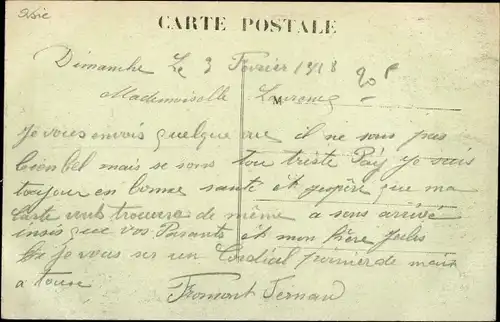 Oise
CARTE POSTALE
Dimanche Le 3 Février 1918
20 f
Mademoiselle Laurence
M
Je vous envois quelque vue il ne sons pas
bien bel mais se sons tou triste Pay je suis
toujour en bonne sante et j'espère que ma
Carte vous trouvera de même a sons arrivé
insis que vos Parants et mon frère Jules
je vous ser un Cordial de main
a tous
Fromont Fernan